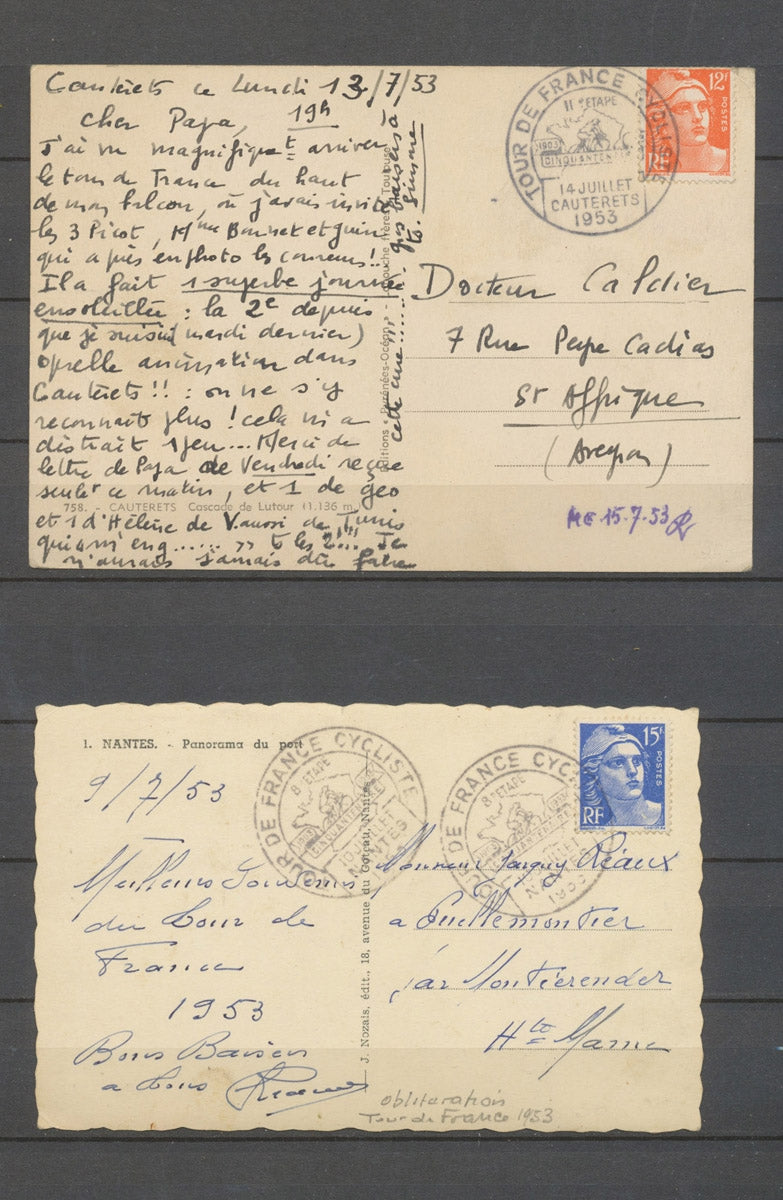 Cauterets ce Lundi 13/7/53
19h
Cher Papa,
J'ai vu magnifiqueᵗ arriver
le tour de France du haut
de mon balcon, où j'avais invité
les 3 Picot, Mme Bonnet et
qui a pris en photo les coureurs!!
Il a fait 1 superbe journée
ensoleillée : la 2e depuis
que je suis ici (mardi dernier)
quelle animation dans
Cauterets!! : on ne s'y
reconnait plus ! cela m'a
distrait 1 peu... Merci de
lettre de Papa de Vendredi reçue
seulᵗ ce matin, et 1 de Géo
et 1 d'Hélène de V. aussi de Tunis
qui m'eng....... à les 2!!! Je
n'aurais jamais dû faire
cette cure...... gros baisers à
ts. Simone
758. - CAUTERETS Cascade de Lutour (1.136 m.)
Editions « Pyrénées-Océan » frères, Toulouse
TOUR DE FRANCE CYCLISTE
11e ETAPE
1903 1953
CINQUANTENAIRE
14 JUILLET
CAUTERETS
1953
12F
POSTES
RF
Docteur Caldier
7 Rue Pape Cadias
St Affrique
(Aveyron)
15.7.53
1. NANTES. - Panorama du port
9/7/53
Meilleurs Souvenirs
du Tour de
France
1953
Bons Baisers
a tous
J. Nozais, édit., 18, avenue du Gotrau, Nantes
TOUR DE FRANCE CYCLISTE
8e ETAPE
1903 1953
CINQUANTENAIRE
10 JUILLET
NANTES
1953
TOUR DE FRANCE CYCLISTE
8e ETAPE
1903 1953
CINQUANTENAIRE
10 JUILLET
NANTES
1953
15F
POSTES
RF
Monsieur Réaux
a Puellemontier
par Montierender
Hte Marne
obliteration
Tour de France 1953